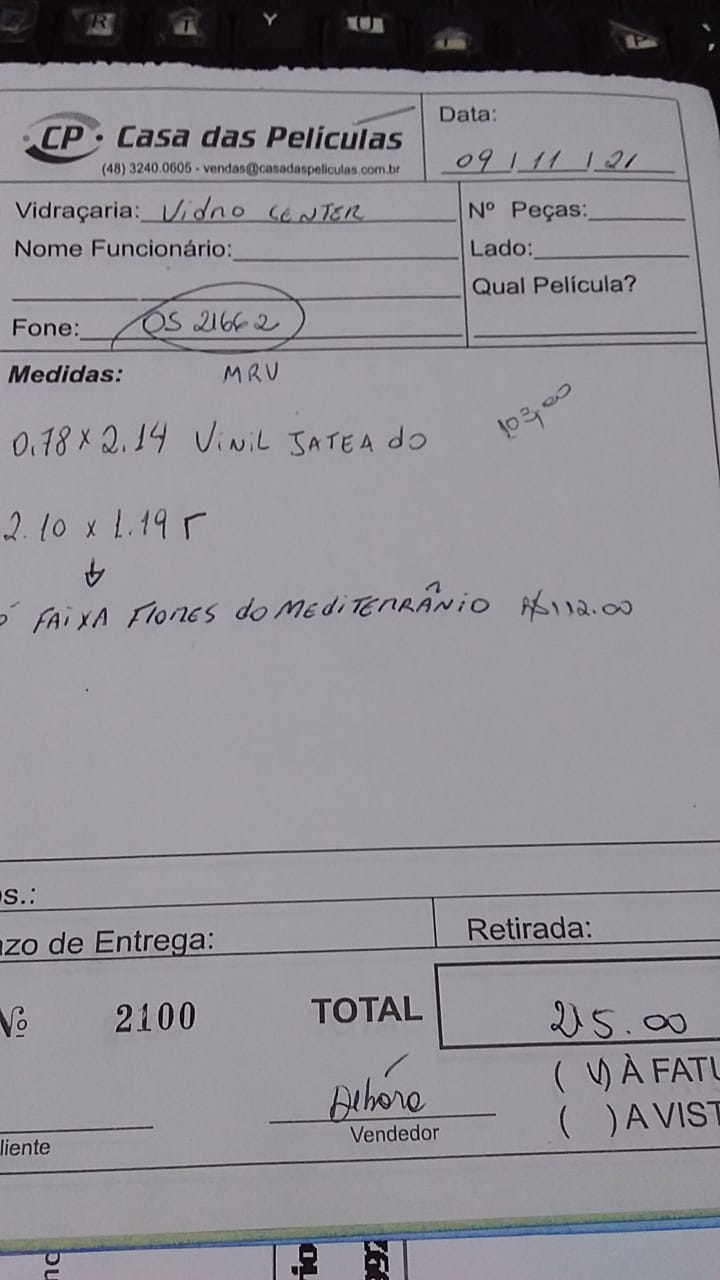 CP • Casa das Películas
(48) 3240.0605 - vendas@casadaspeliculas.com.br
Data:
09 / 11 / 21
Vidraçaria: Vidro CENTER
Nº Peças:
Nome Funcionário:
Lado:
Qual Película?
Fone: OS 21662
Medidas: MRV
0.78 x 2.14 VINIL JATEADO
103,00
2.10 x 1.19
FAIXA FLORES do MEDITERRÂNIO R$112.00
s.:
zo de Entrega:
Retirada:
Nº 2100
TOTAL
215.00
À FATU
Débora
( ) A VIST
liente
Vendedor